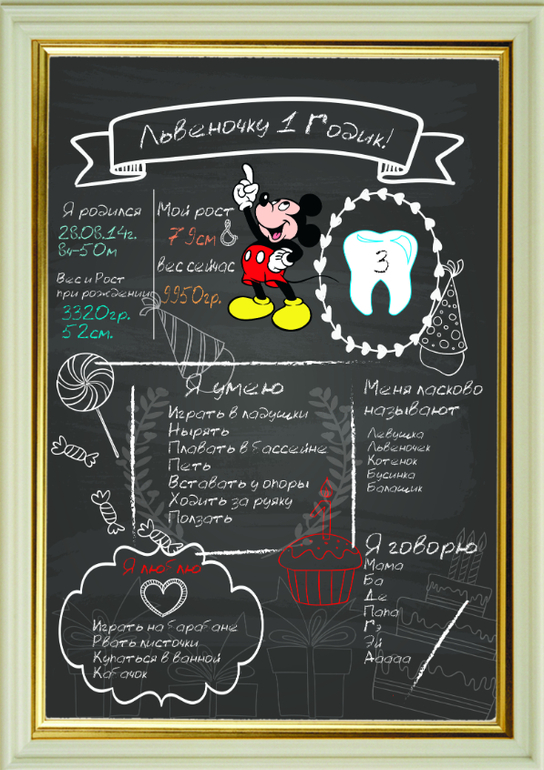 Львеночку 1 Годик!
Я родился
28.08.14г.
8ч-50м
Вес и Рост
при рождении
3320гр.
52см.
Мой рост
79см
вес сейчас
9950гр.
3
Я умею
Играть в ладушки
Нырять
Плавать в бассейне
Петь
Вставать у опоры
Ходить за руяку
Ползать
Меня ласково
называют
Левушка
Львеночек
Котенок
Бусинка
Балашик
Я люблю
Играть на барабане
Рвать листочки
Купаться в ванной
Кабачок
Я говорю
Мама
Ба
Де
Папа
Гэ
Эй
Ааааа